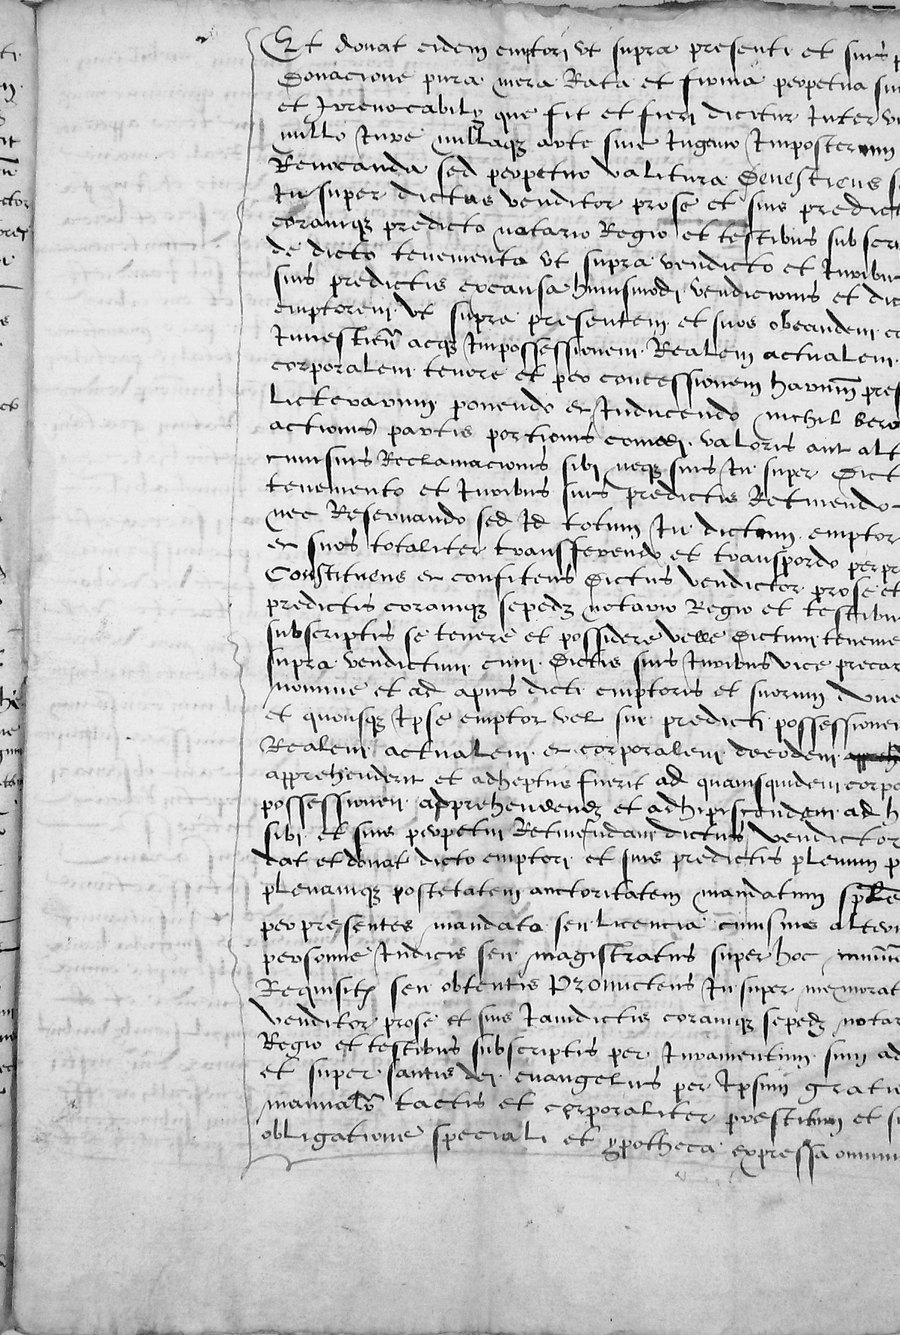 Et donat eidem emptori ut supra presenti et suis p
Donacione pura mera Rata et firma perpetua sui
et Jrrevocabily que fit et fieri dicitur Inter vi
nullo Iure nullaqz arte sive Ingenio Imposterum
Revocanda sed perpetuo valitura Devesticus s
In super dictus venditor pro se et suis predict
coramqz predicto notario Regio et testibus subscri
de dicto tenemento ut supra vendicto et Iuribus
suis predictis ex causa huiusmodi vendicionis et dic
emptorem ut supra presentem et suos obeandem ca
Investitu acqz Impossessionem Realem actualem
corporalem tenore et per concessionem harum pres
Licterarum ponendo et Inducendo nichil
actionis partis portionis comodi valoris aut alt
cuiusvis Reclamacionis sibi neqz suis In super Dict
tenemento et Iuribus suis predictis Retinendo
nec Reservando sed Id totum In dictum emptor
et suos totaliter transfferendo et transpordo per pr
Constituens et confitens Dictus vendictor pro se et
predictis coramqz sepedz notario Regio et testibu
subscriptis se tenere et possidere velle Dictum teneme
supra vendictum cum Dictis suis Iuribus vice precar
nomine et ad opus dicti emptoris et suorum Dune
et quousqz Ipse emptor vel sui predicti possessionem
Realem actualem et corporalem deeodem
apprehenderit et adheptus fuerit ad quamquidem corpo
possessionem apprehendendz et adhipiscendem ad h
sibi et suis perpetui Retinendam dictus vendictor
dat et donat dicto emptori et suis predictis plenum p
plenamqz postetatem auctoritatem mandatum sple
per presentes mandata seu licencia cuiusvis alteri
persone Iudicis seu magistratus super hoc minime
Requisitis seu obtentis Promictens In super memorat
venditor pro se et suis Iamdictis coramqz sepedz notar
Regio et testibus subscriptis per Iuramentum suu ad
et super sancta dei evangelius per Ipsum gratis
manualr tactis et corporaliter prestitum et su
obligatione speciali et ypotheca expressa omniu